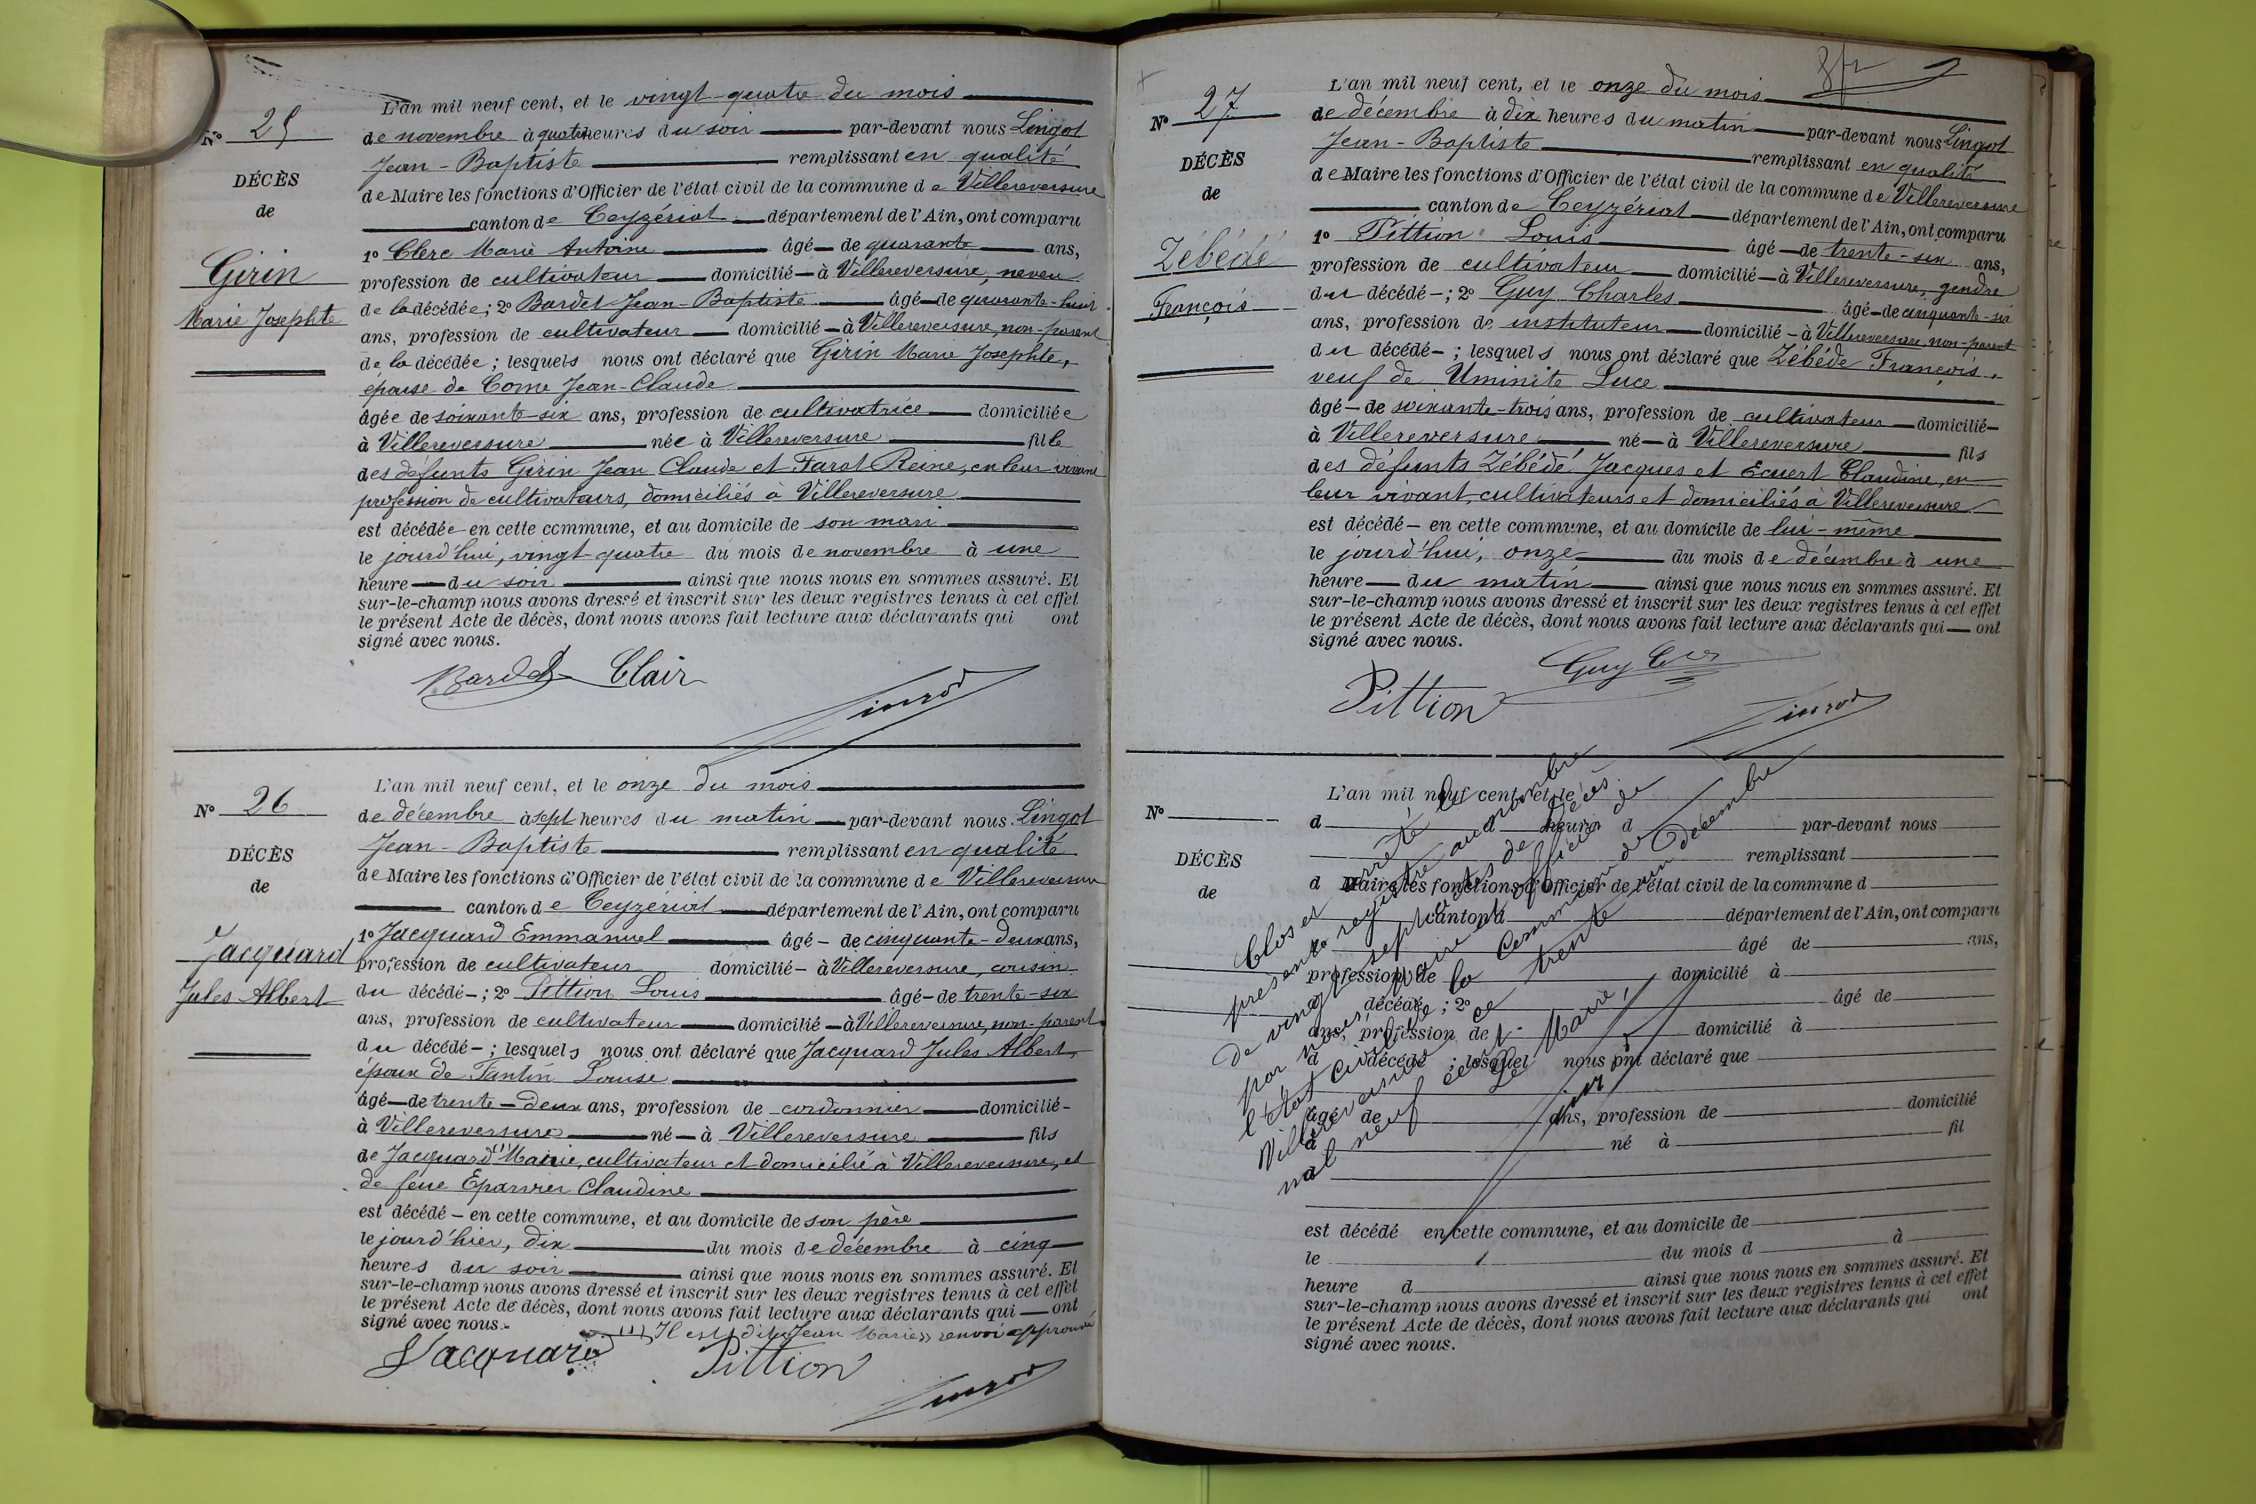 L'an mil neuf cent, et le vingt-quatre du mois
N° 25
de novembre à quatre heures du soir par-devant nous Lingot
Jean-Baptiste remplissant en qualité
DÉCÈS
de Maire les fonctions d'Officier de l'état civil de la commune de Villereversure
de
canton de Ceyzériat département de l'Ain, ont comparu
1° Clerc Marie Antoine âgé de quarante ans,
Girin
profession de cultivateur domicilié à Villereversure, neveu
Marie Josephte
de la décédée; 2° Bardet Jean-Baptiste âgé de quarante-huit
ans, profession de cultivateur domicilié à Villereversure, non-parent
de la décédée; lesquels nous ont déclaré que Girin Marie Josephte,
épouse de Come Jean-Claude
âgée de soixante-six ans, profession de cultivatrice domiciliée
à Villereversure née à Villereversure fille
des défunts Girin Jean Claude et Farat Reine, en leur vivant
profession de cultivateurs, domiciliés à Villereversure
est décédée en cette commune, et au domicile de son mari
le jourd'hui, vingt-quatre du mois de novembre à une
heure du soir ainsi que nous nous en sommes assuré. Et
sur-le-champ nous avons dressé et inscrit sur les deux registres tenus à cet effet
le présent Acte de décès, dont nous avons fait lecture aux déclarants qui ont
signé avec nous.
Bardet Clair
L'an mil neuf cent, et le onze du mois
N° 26
de décembre à sept heures du matin par-devant nous Lingot
Jean-Baptiste remplissant en qualité
DÉCÈS
de Maire les fonctions d'Officier de l'état civil de la commune de Villereversure
de
canton de Ceyzériat département de l'Ain, ont comparu
1° Jacquard Emmanuel âgé de cinquante-deux ans,
Jacquard
profession de cultivateur domicilié à Villereversure, cousin
Jules Albert
du décédé; 2° Pittion Louis âgé de trente-six
ans, profession de cultivateur domicilié à Villereversure, non-parent
du décédé; lesquels nous ont déclaré que Jacquard Jules Albert,
époux de Tantin Louise
âgé de trente-deux ans, profession de cordonnier domicilié
à Villereversure né à Villereversure fils
de Jacquard (1) Marie, cultivateur et domicilié à Villereversure, et
de feue Eparvier Claudine
est décédé en cette commune, et au domicile de son père
le jourd'hier, dix du mois de décembre à cinq
heures du soir ainsi que nous nous en sommes assuré. Et
sur-le-champ nous avons dressé et inscrit sur les deux registres tenus à cet effet
le présent Acte de décès, dont nous avons fait lecture aux déclarants qui ont
signé avec nous.
(1) Il est dit "Jean Marie" renvoi approuvé
Jacquard Pittion
L'an mil neuf cent, et le onze du mois
N° 27
de décembre à dix heures du matin par-devant nous Lingot
Jean-Baptiste remplissant en qualité
DÉCÈS
de Maire les fonctions d'Officier de l'état civil de la commune de Villereversure
de
canton de Ceyzériat département de l'Ain, ont comparu
1° Pittion Louis âgé de trente-six ans,
Zébédé
profession de cultivateur domicilié à Villereversure, gendre
François
du décédé; 2° Guy Charles âgé de cinquante-six
ans, profession de instituteur domicilié à Villereversure, non-parent
du décédé; lesquels nous ont déclaré que Zébédé François,
veuf de Uminite Luce
âgé de soixante-trois ans, profession de cultivateur domicilié
à Villereversure né à Villereversure fils
des défunts Zébédé Jacques et Ecuert Claudine, en
leur vivant, cultivateurs et domiciliés à Villereversure
est décédé en cette commune, et au domicile de lui-même
le jourd'hui, onze du mois de décembre à une
heure du matin ainsi que nous nous en sommes assuré. Et
sur-le-champ nous avons dressé et inscrit sur les deux registres tenus à cet effet
le présent Acte de décès, dont nous avons fait lecture aux déclarants qui ont
signé avec nous.
Guy
Pittion
L'an mil neuf cent, et le
N°
d à heure d par-devant nous
remplissant
DÉCÈS
d Maire les fonctions d'Officier de l'état civil de la commune d
de
canton d département de l'Ain, ont comparu
âgé de ans,
profession de domicilié à
décédé; 2° âgé de
ans, profession de domicilié à
d décédé; lesquel nous ont déclaré que
âgé de ans, profession de domicilié
à né à fil
est décédé en cette commune, et au domicile de
le du mois d à
heure d ainsi que nous nous en sommes assuré. Et
sur-le-champ nous avons dressé et inscrit sur les deux registres tenus à cet effet
le présent Acte de décès, dont nous avons fait lecture aux déclarants qui ont
signé avec nous.
Clos et arrêté le
présent registre au nombre
de vingt sept actes de décès
par nous, maire et officier de
l'état civil de la commune de
Villereversure ce trente un décembre
mil neuf cent.
Le Maire,